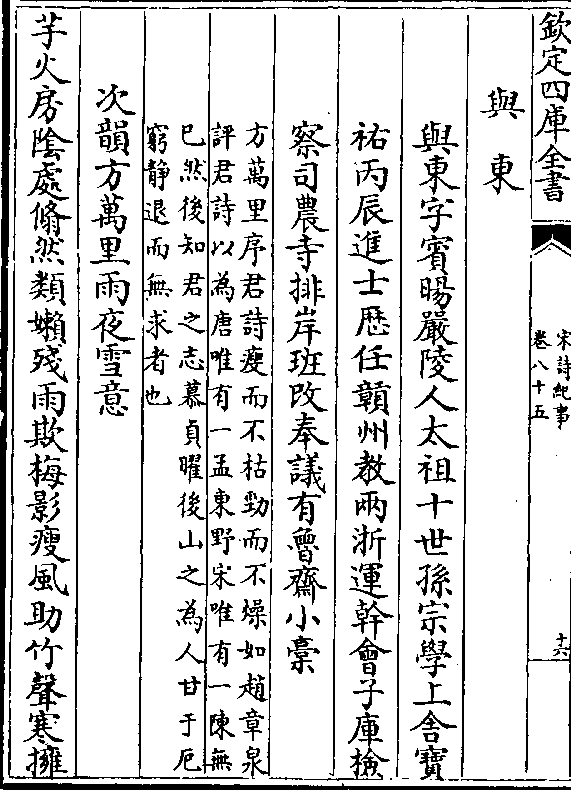 欽定四庫全書
宋詩紀事
卷八十五
十六
與東
與東字賓暘嚴陵人太祖十世孫宗學上舍寶
祐丙辰進士歴任贛州教兩浙運幹會子庫檢
察司農寺排岸班改奉議有魯齋小槀
方萬里序君詩瘦而不枯勁而不燥如趙章泉
評君詩以為唐唯有一孟東野宋唯有一陳無
巳然後知君之志慕貞曜後山之為人甘于厄
窮静退而無求者也
次韻方萬里雨夜雪意
芋火房隂處翛然類嬾殘雨欺梅影瘦風助竹聲寒擁